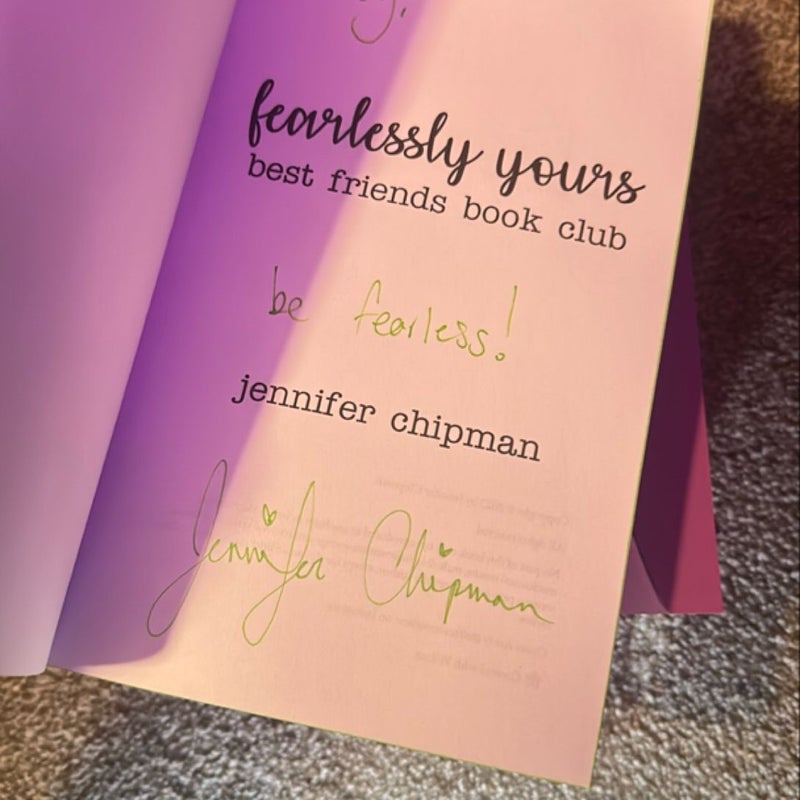 fearlessly yours
best friends book club
be fearless!
jennifer chipman
Jennifer Chipman